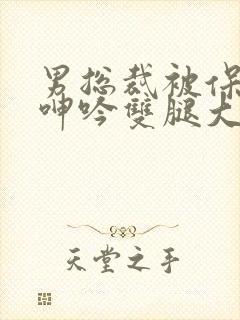 男总裁被保
呻吟雙腿大
天堂之手